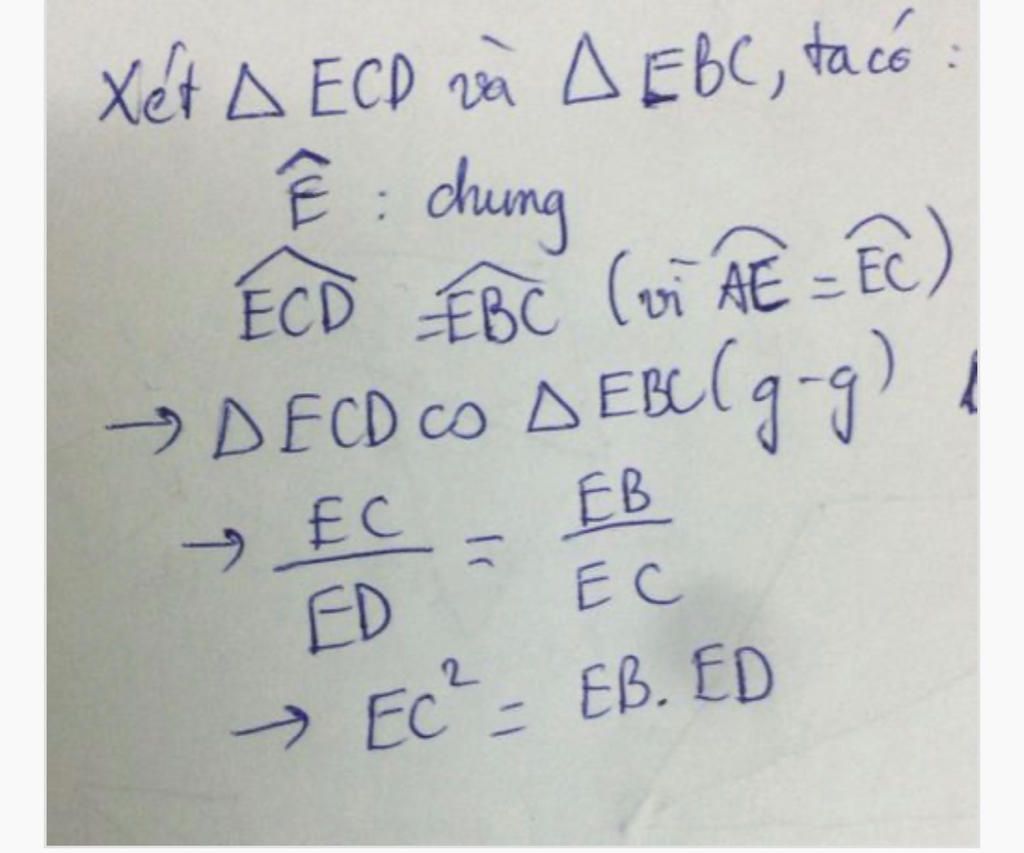 Xét Δ ECD và Δ EBC, ta có :
Ê : chung
$\widehat{ECD}$ = $\widehat{EBC}$ (vì $\overset{\frown}{AE}$ = $\overset{\frown}{EC}$)
→ Δ ECD ∽ Δ EBC (g-g)
→ $\frac{EC}{ED}$ = $\frac{EB}{EC}$
→ EC² = EB. ED